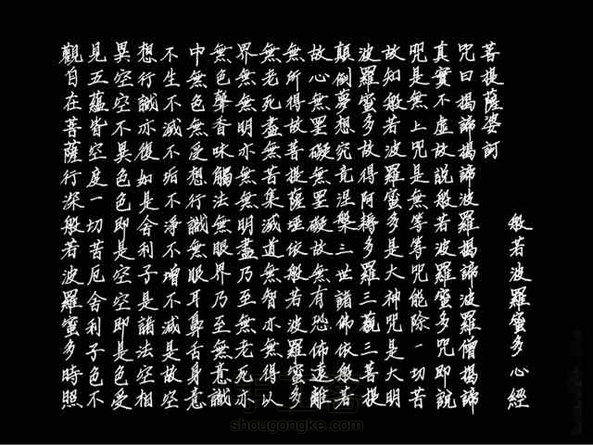 般若波羅蜜多心經
觀自在菩薩行深般若波羅蜜多時照
見五蘊皆空度一切苦厄舍利子色不
異空空不異色色即是空空即是色受
想行識亦復如是舍利子是諸法空相
不生不滅不垢不淨不增不減是故空
中無色無受想行識無眼耳鼻舌身意
無色聲香味觸法無眼界乃至無意識
界無無明亦無無明盡乃至無老死亦
無老死盡無苦集滅道無智亦無得以
無所得故菩提薩埵依般若波羅蜜多
故心無罣礙無罣礙故無有恐怖遠離
顛倒夢想究竟涅槃三世諸佛依般若
波羅蜜多故得阿耨多羅三藐三菩提
故知般若波羅蜜多是大神咒是大明
咒是無上咒是無等等咒能除一切苦
真實不虛故說般若波羅蜜多咒即說
咒曰揭諦揭諦波羅揭諦波羅僧揭諦
菩提薩婆訶
shougongke.com